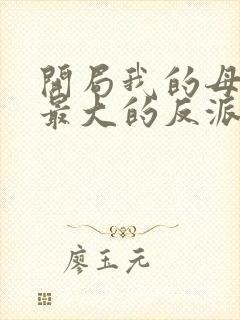 開局我的母
最大的反派
廖玉元